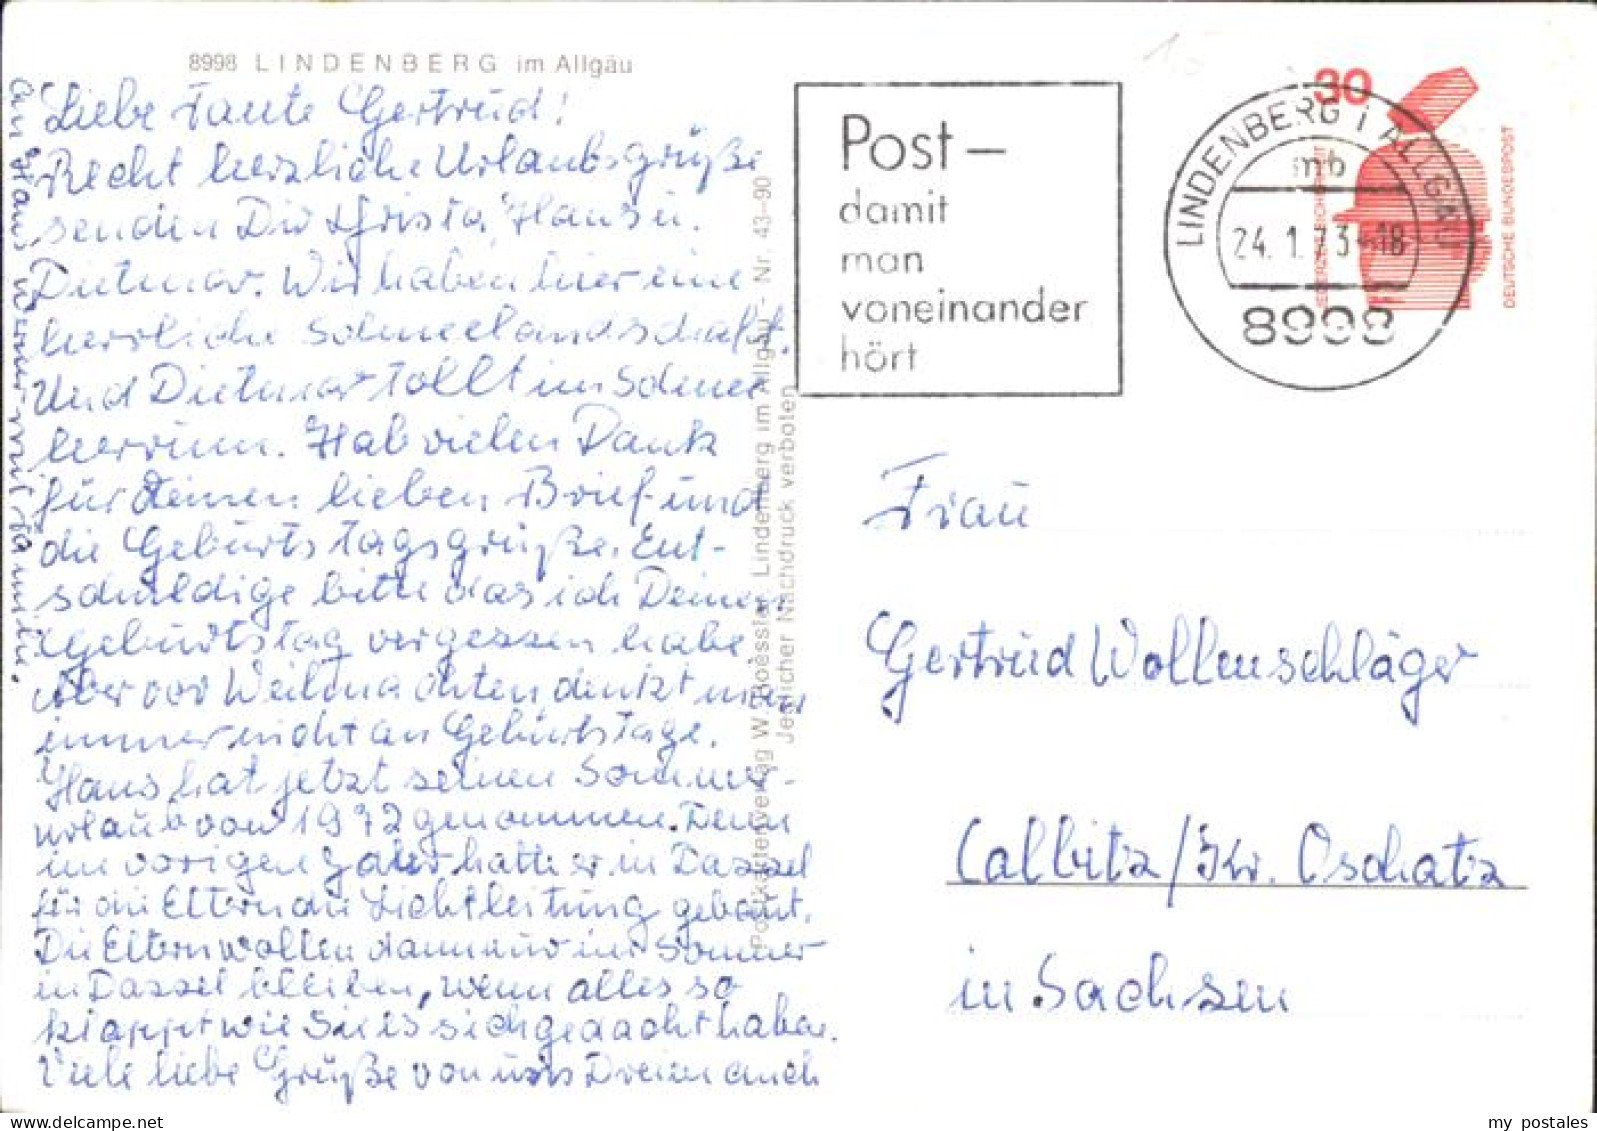 8998 LINDENBERG im Allgäu
Liebe Tante Gertrud!
Recht herzliche Urlaubsgrüße
senden Dir Christa, Hans u.
Dietmar. Wir haben hier eine
herrliche Schneelandschaft.
Und Dietmar tollt im Schnee
herrum. Hab vielen Dank
für Deinen lieben Brief und
die Geburtstagsgrüße. Ent-
schuldige bitte das ich Deinen
Geburtstag vergessen habe
aber vor Weihnachten denkt man
immer nicht an Geburtstage.
Hans hat jetzt seinen Sommer-
urlaub von 1972 genommen. Denn
im vorigen Jahr hatte er in Dassel
für die Eltern die Lichtleitung gebaut.
Die Eltern wollen dann nur im Sommer
in Dassel bleiben, wenn alles so
klappt wie Sie es sich gedacht haben.
Viele liebe Grüße von uns Dreien auch
an Hans Werner mit Familie.
Postkartenverlag W. Boessler, Lindenberg im Allgäu - Nr. 43-90
Jeglicher Nachdruck verboten
Post –
damit
man
voneinander
hört
LINDENBERG i ALLGÄU
mb
24.1.73-18
8998
30
DEUTSCHE BUNDESPOST
Frau
Gertrud Wollenschläger
Calbitz / Kr. Oschatz
in Sachsen
my postales